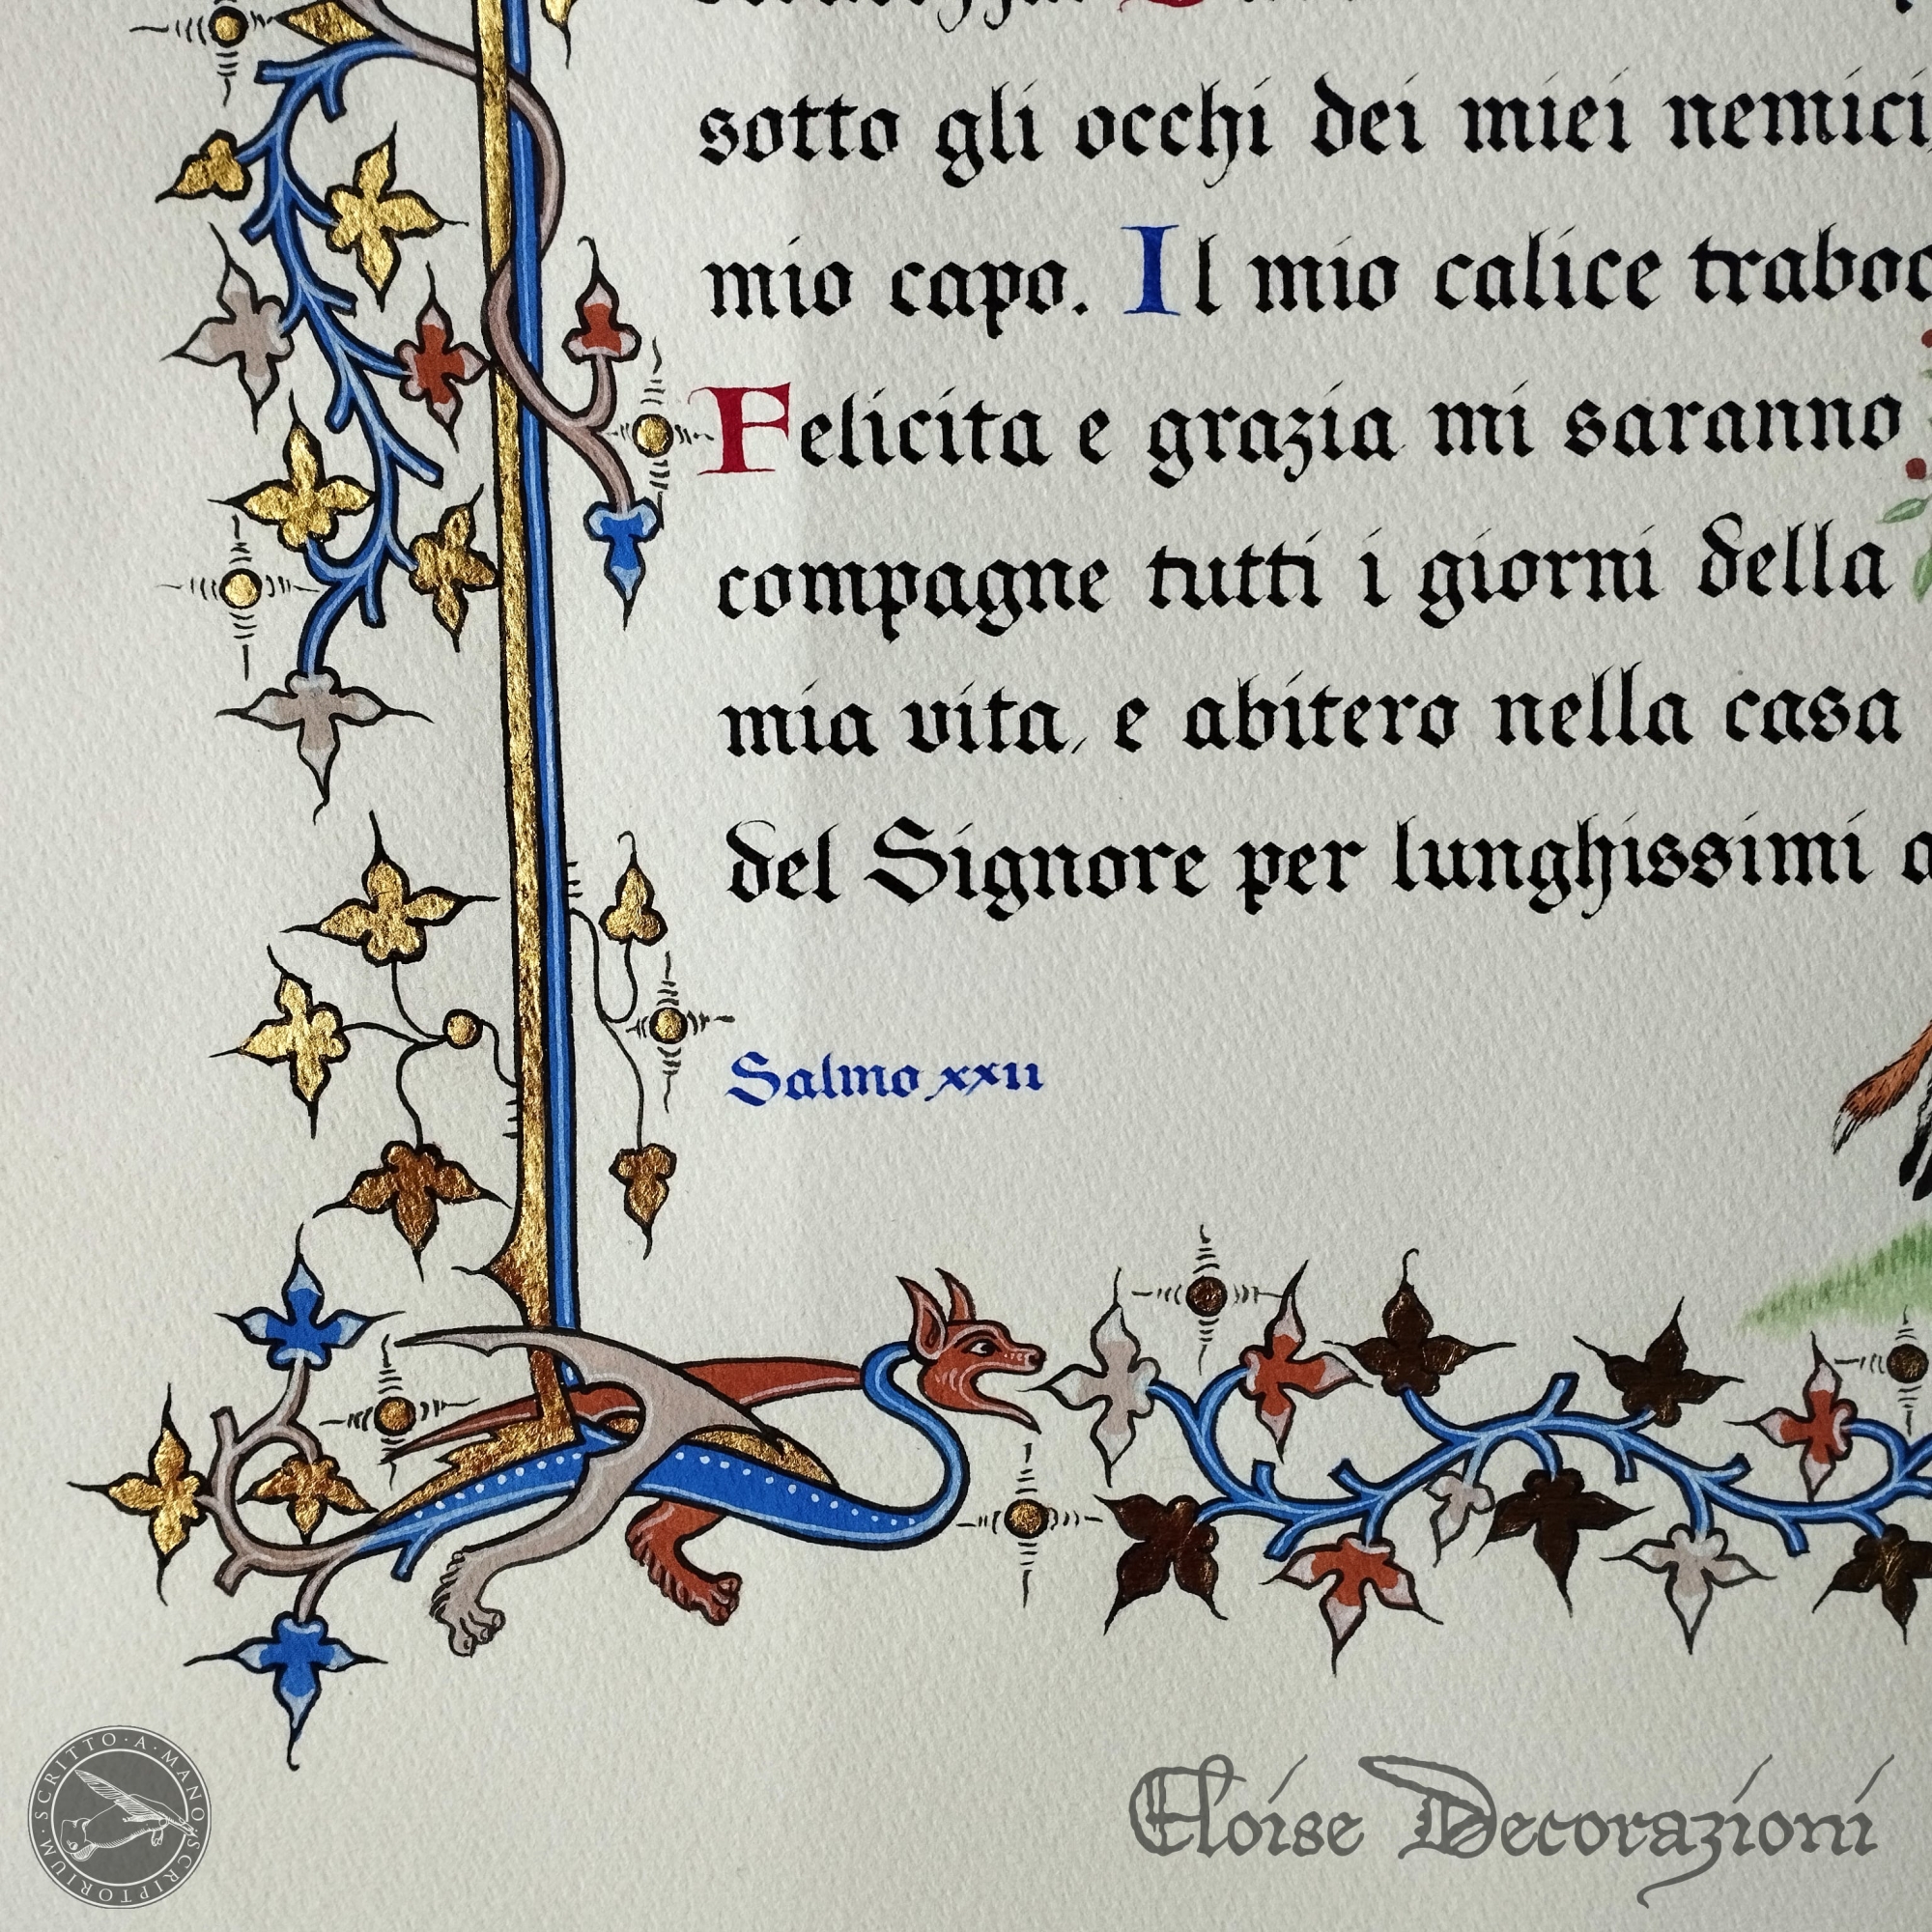 sotto gli occhi dei miei nemici,
mio capo. Il mio calice traboc
Felicita e grazia mi saranno
compagne tutti i giorni della
mia vita, e abitero nella casa
del Signore per lunghissimi a
Salmo xxii
Eloise Decorazioni
SCRITTO · A · MANO · SCRIPTORIUM ·